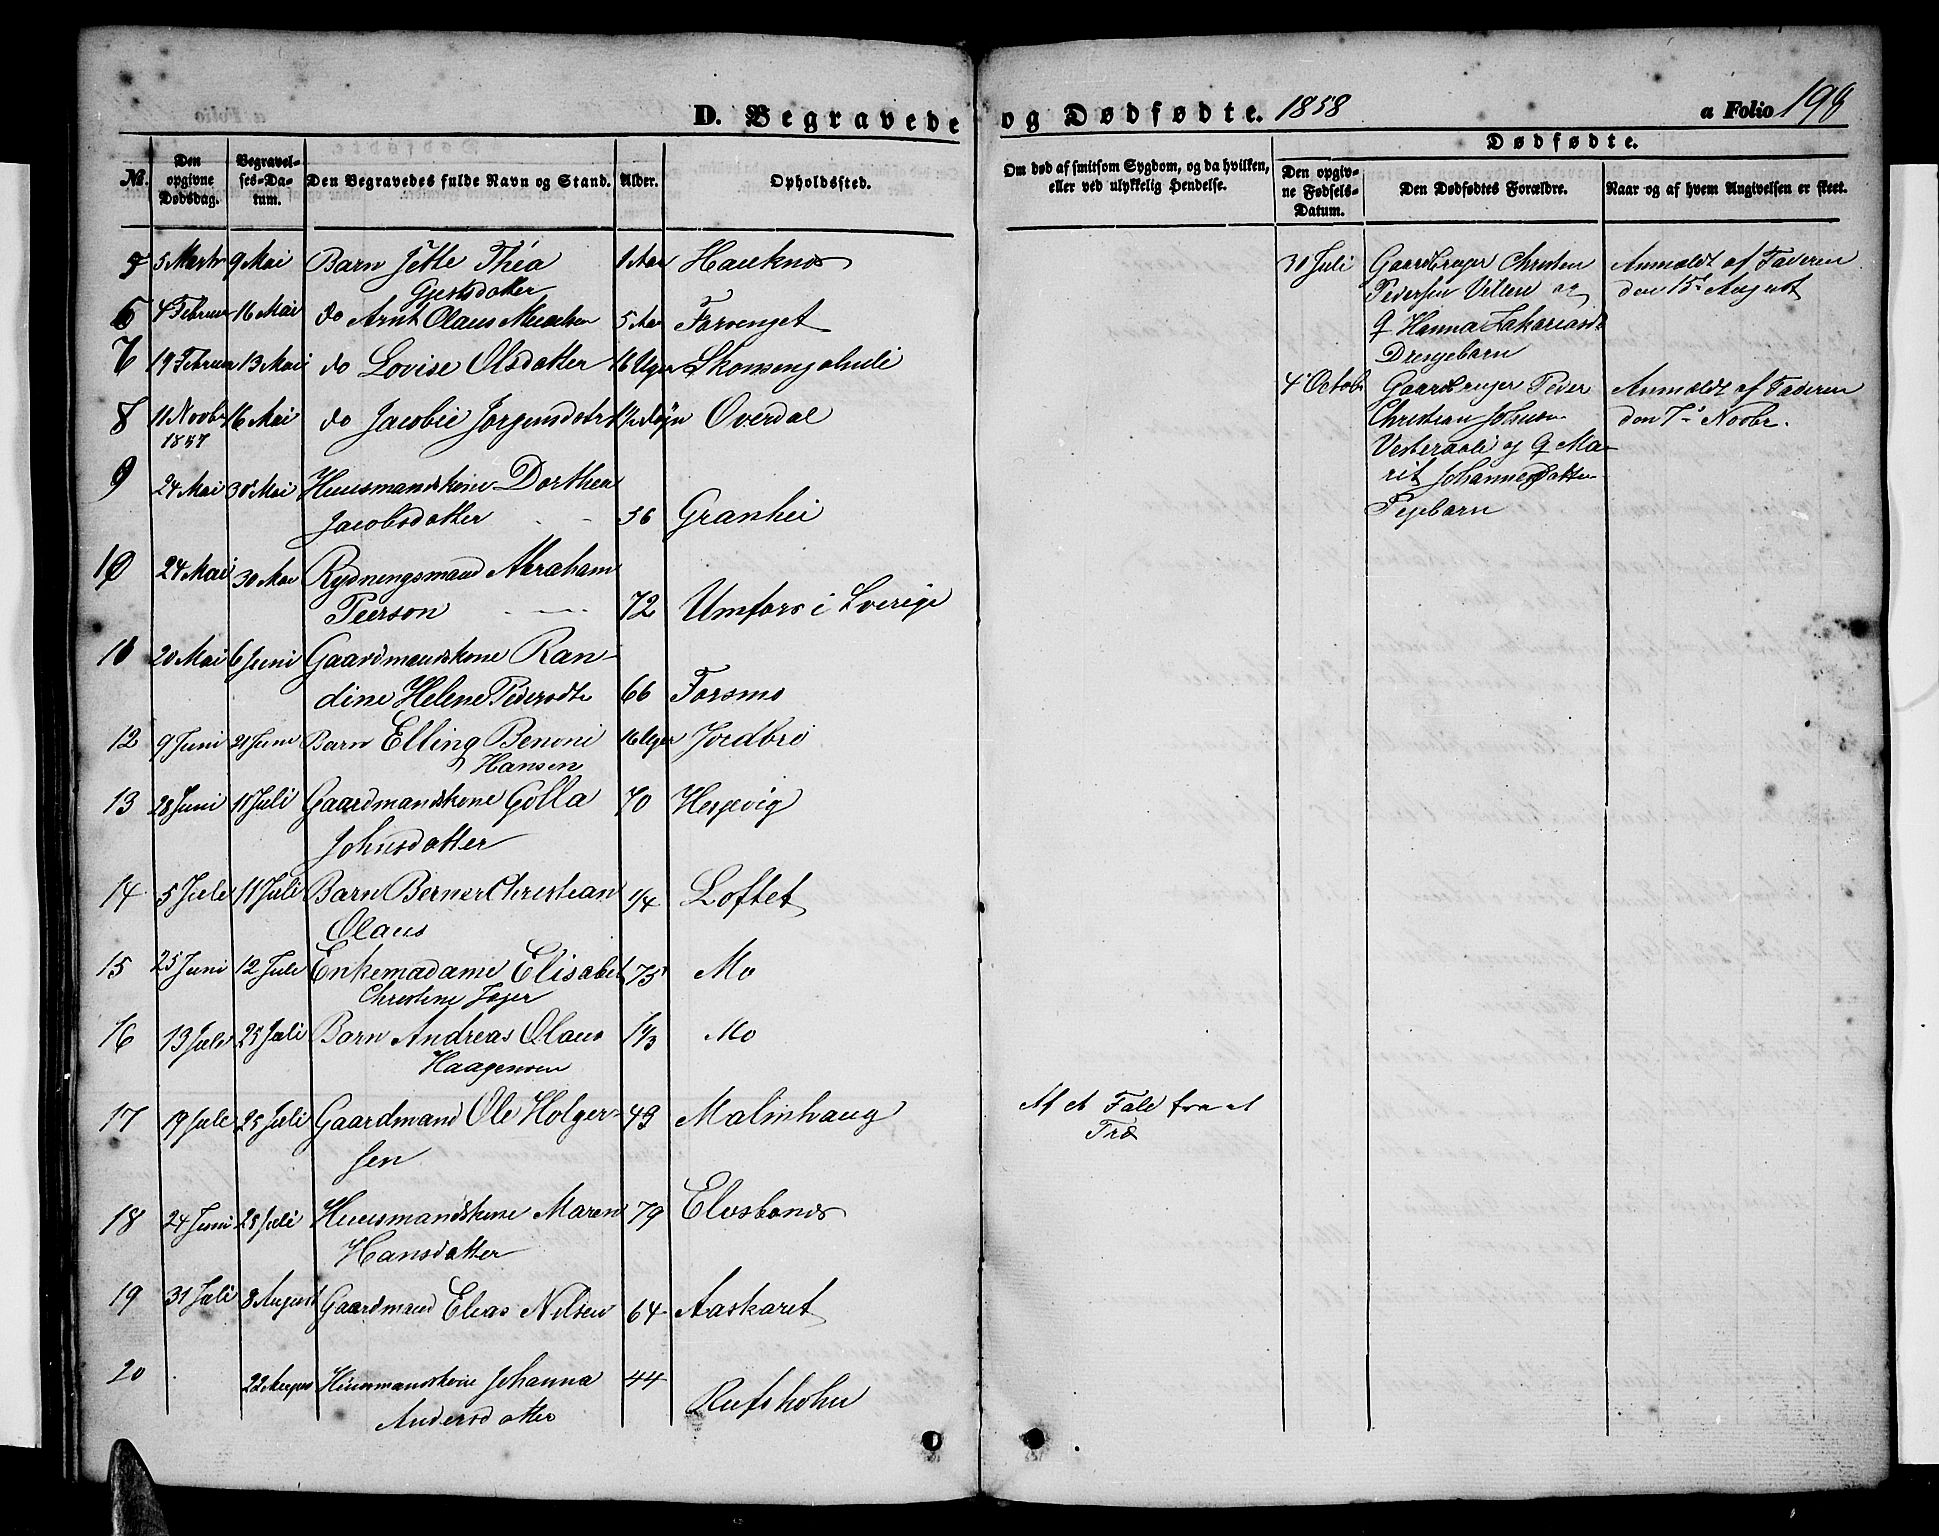 D. Begravede og Dødfødte. 1858 a Folio 198
No. Den opgivne Dødsdag. Begravelses-Datum. Den Begravedes fulde Navn og Stand. Alder. Opholdssted.
Om død af smitsom Sygdom, og da hvilken, eller ved ulykkelig Hendelse.
Dødfødte.
Den opgivne Fødsels-Datum. Den Dødfødtes Forældre. Naar og af hvem Angivelsen er skeet.
5 5 Marts 9 Mai Barn Jette Théa
Gjertsdatter
6 4 Februar 16 Mai do Arnt Olaus 5 Aar Forvenget
7 19 Februar 13 Mai do Lovise Olsdatter 16 Uger
8 11 Novbr 1857 16 Mai do Jacobie Jørgensdotr Overdal
9 24 Mai 30 Mai Huusmandskone Dorthea
Jacobsdatter 56 Granhei
10 24 Mai 30 Mai Rydningsmand Abraham
Peerson 72 Umfors i Sverige
11 20 Mai 6 Juni Gaardmandskone Ran-
dine Helene Pedersdtr 66 Forsmo
12 9 Juni 21 Juni Barn Elling Benoni 16 Uger Jordbro
Hansen
13 28 Juni 11 Juli Gaardmandskone Golla 70 Hesjevig
Johnsdatter
14 5 Juli 11 Juli Barn Berner Christian 1/4 Loftet
Olaus
15 25 Juni 12 Juli Enkemadame Elisabet 75 Mo
Christine Jager
16 13 Juli 25 Juli Barn Andreas Olaus 1 1/3 Mo
Haagensen
17 19 Juli 25 Juli Gaardmand Ole Holger- 43 Malmhaug
sen
Af et Fald fra et
Træ
18 24 Juni 25 Juli Huusmandskone Maren 79
Hansdatter
19 31 Juli 8 August Gaardmand Elias Nilsen 64 Aaskaret
20 22 August Huusmandskone Johanna 44
Andersdatter
30 Juli Gaardbruger Christen
Pedersen og
Q Hanna Zakariasd
Drengebarn
Anmeldt af Faderen
den 15 August
4 Octob Gaardbruger Peder
Christian Johnsen
og Q Ma-
rit Johannesdatter
Pigebarn
Anmeldt af Faderen
den 7 Novbr.